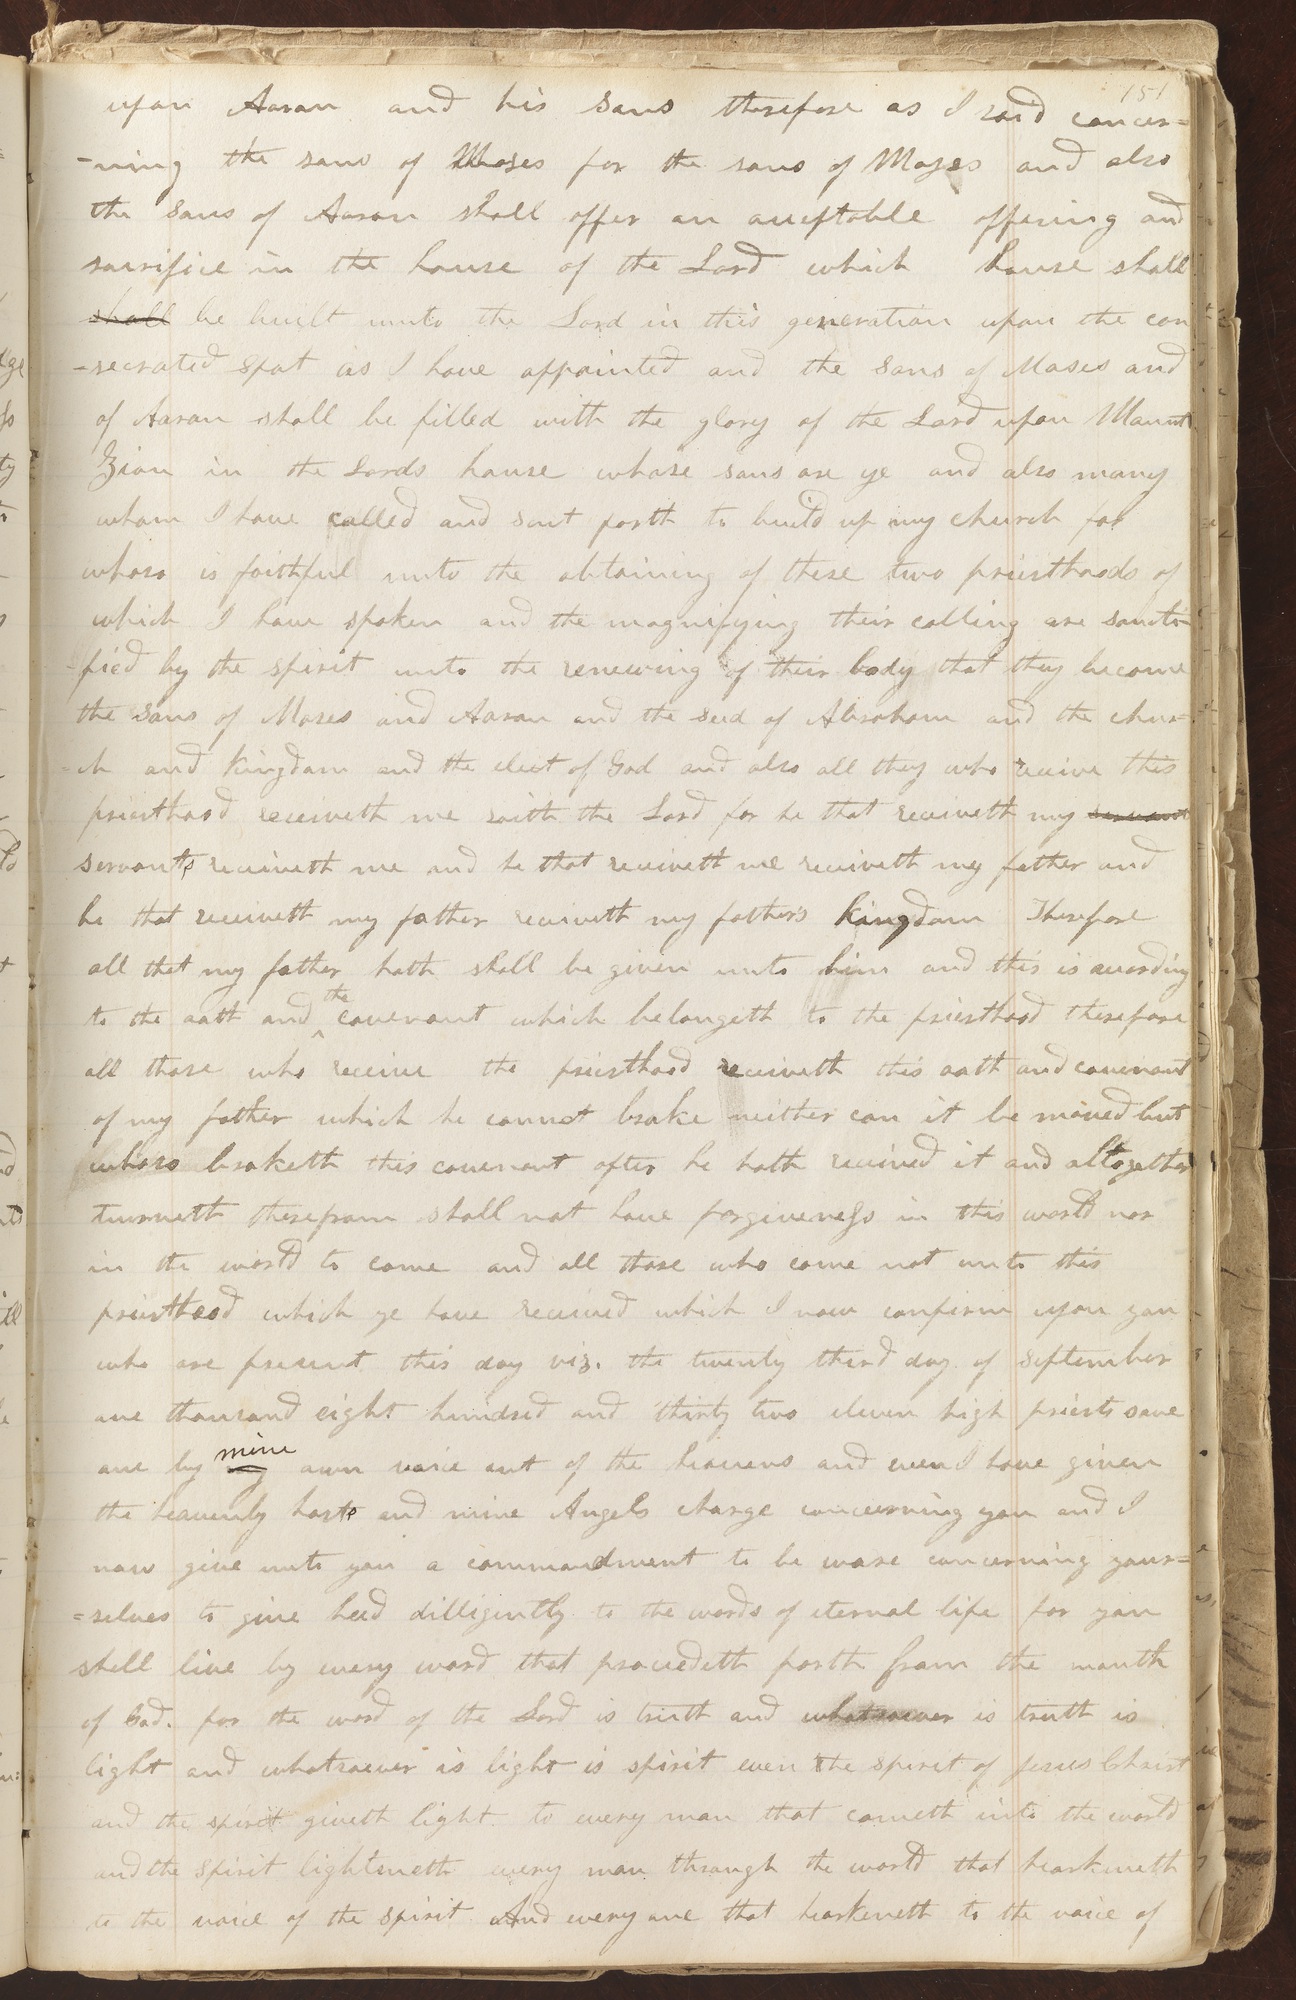 151
upon Aaron and his sons therefore as I said concer=
-ning the sons of Moses for the sons of Moses and also
the sons of Aaron shall offer an acceptable offering and
sacrifice in the house of the Lord which house shall
shall be built unto the Lord in this generation upon the con
-secrated spot as I have appointed and the sons of Moses and
of Aaron shall be filled with the glory of the Lord upon Mount
Zion in the Lords house whose sons are ye and also many
whom I have called and sent forth to build up my church for
whoso is faithful unto the obtaining of these two priesthoods of
which I have spoken and the magnifying their calling are sancti-
-fied by the spirit unto the renewing of their body that they become
the sons of Moses and Aaron and the seed of Abraham and the chur=
=ch and kingdom and the elect of God and also all they who receive this
priesthood receiveth me saith the Lord for he that receiveth my servant
servants receiveth me and he that receiveth me receiveth my father and
he that receiveth my father receiveth my father's kingdom Therefore
all that my father hath shall be given unto him and this is according
to the oath and the covenant which belongeth to the priesthood therefore
all those who receive the priesthood receiveth this oath and covenant
of my father which he cannot brake neither can it be moved but
whoso braketh this covenant after he hath received it and altogether
turneth therefrom shall not have forgiveness in this world nor
in the world to come and all those who come not unto this
priesthood which ye have received which I now confirm upon you
who are present this day viz. the twenty third day of September
one thousand eight hundred and thirty two eleven high priests save
one by my mine own voice out of the heavens and even I have given
the heavenly hosts and mine Angels charge concerning you and I
now give unto you a commandment to be ware concerning your=
=selves to give heed dilligently to the words of eternal life for you
shall live by every word that procedeth forth from the mouth
of God. for the word of the Lord is truth and whatsoever is truth is
light and whatsoever is light is spirit even the spirit of Jesus Christ
and the spirit giveth light to every man that cometh into the world
and the spirit lightneth every man through the world that hearkneth
to the voice of the spirit And every one that hearkeneth to the voice of